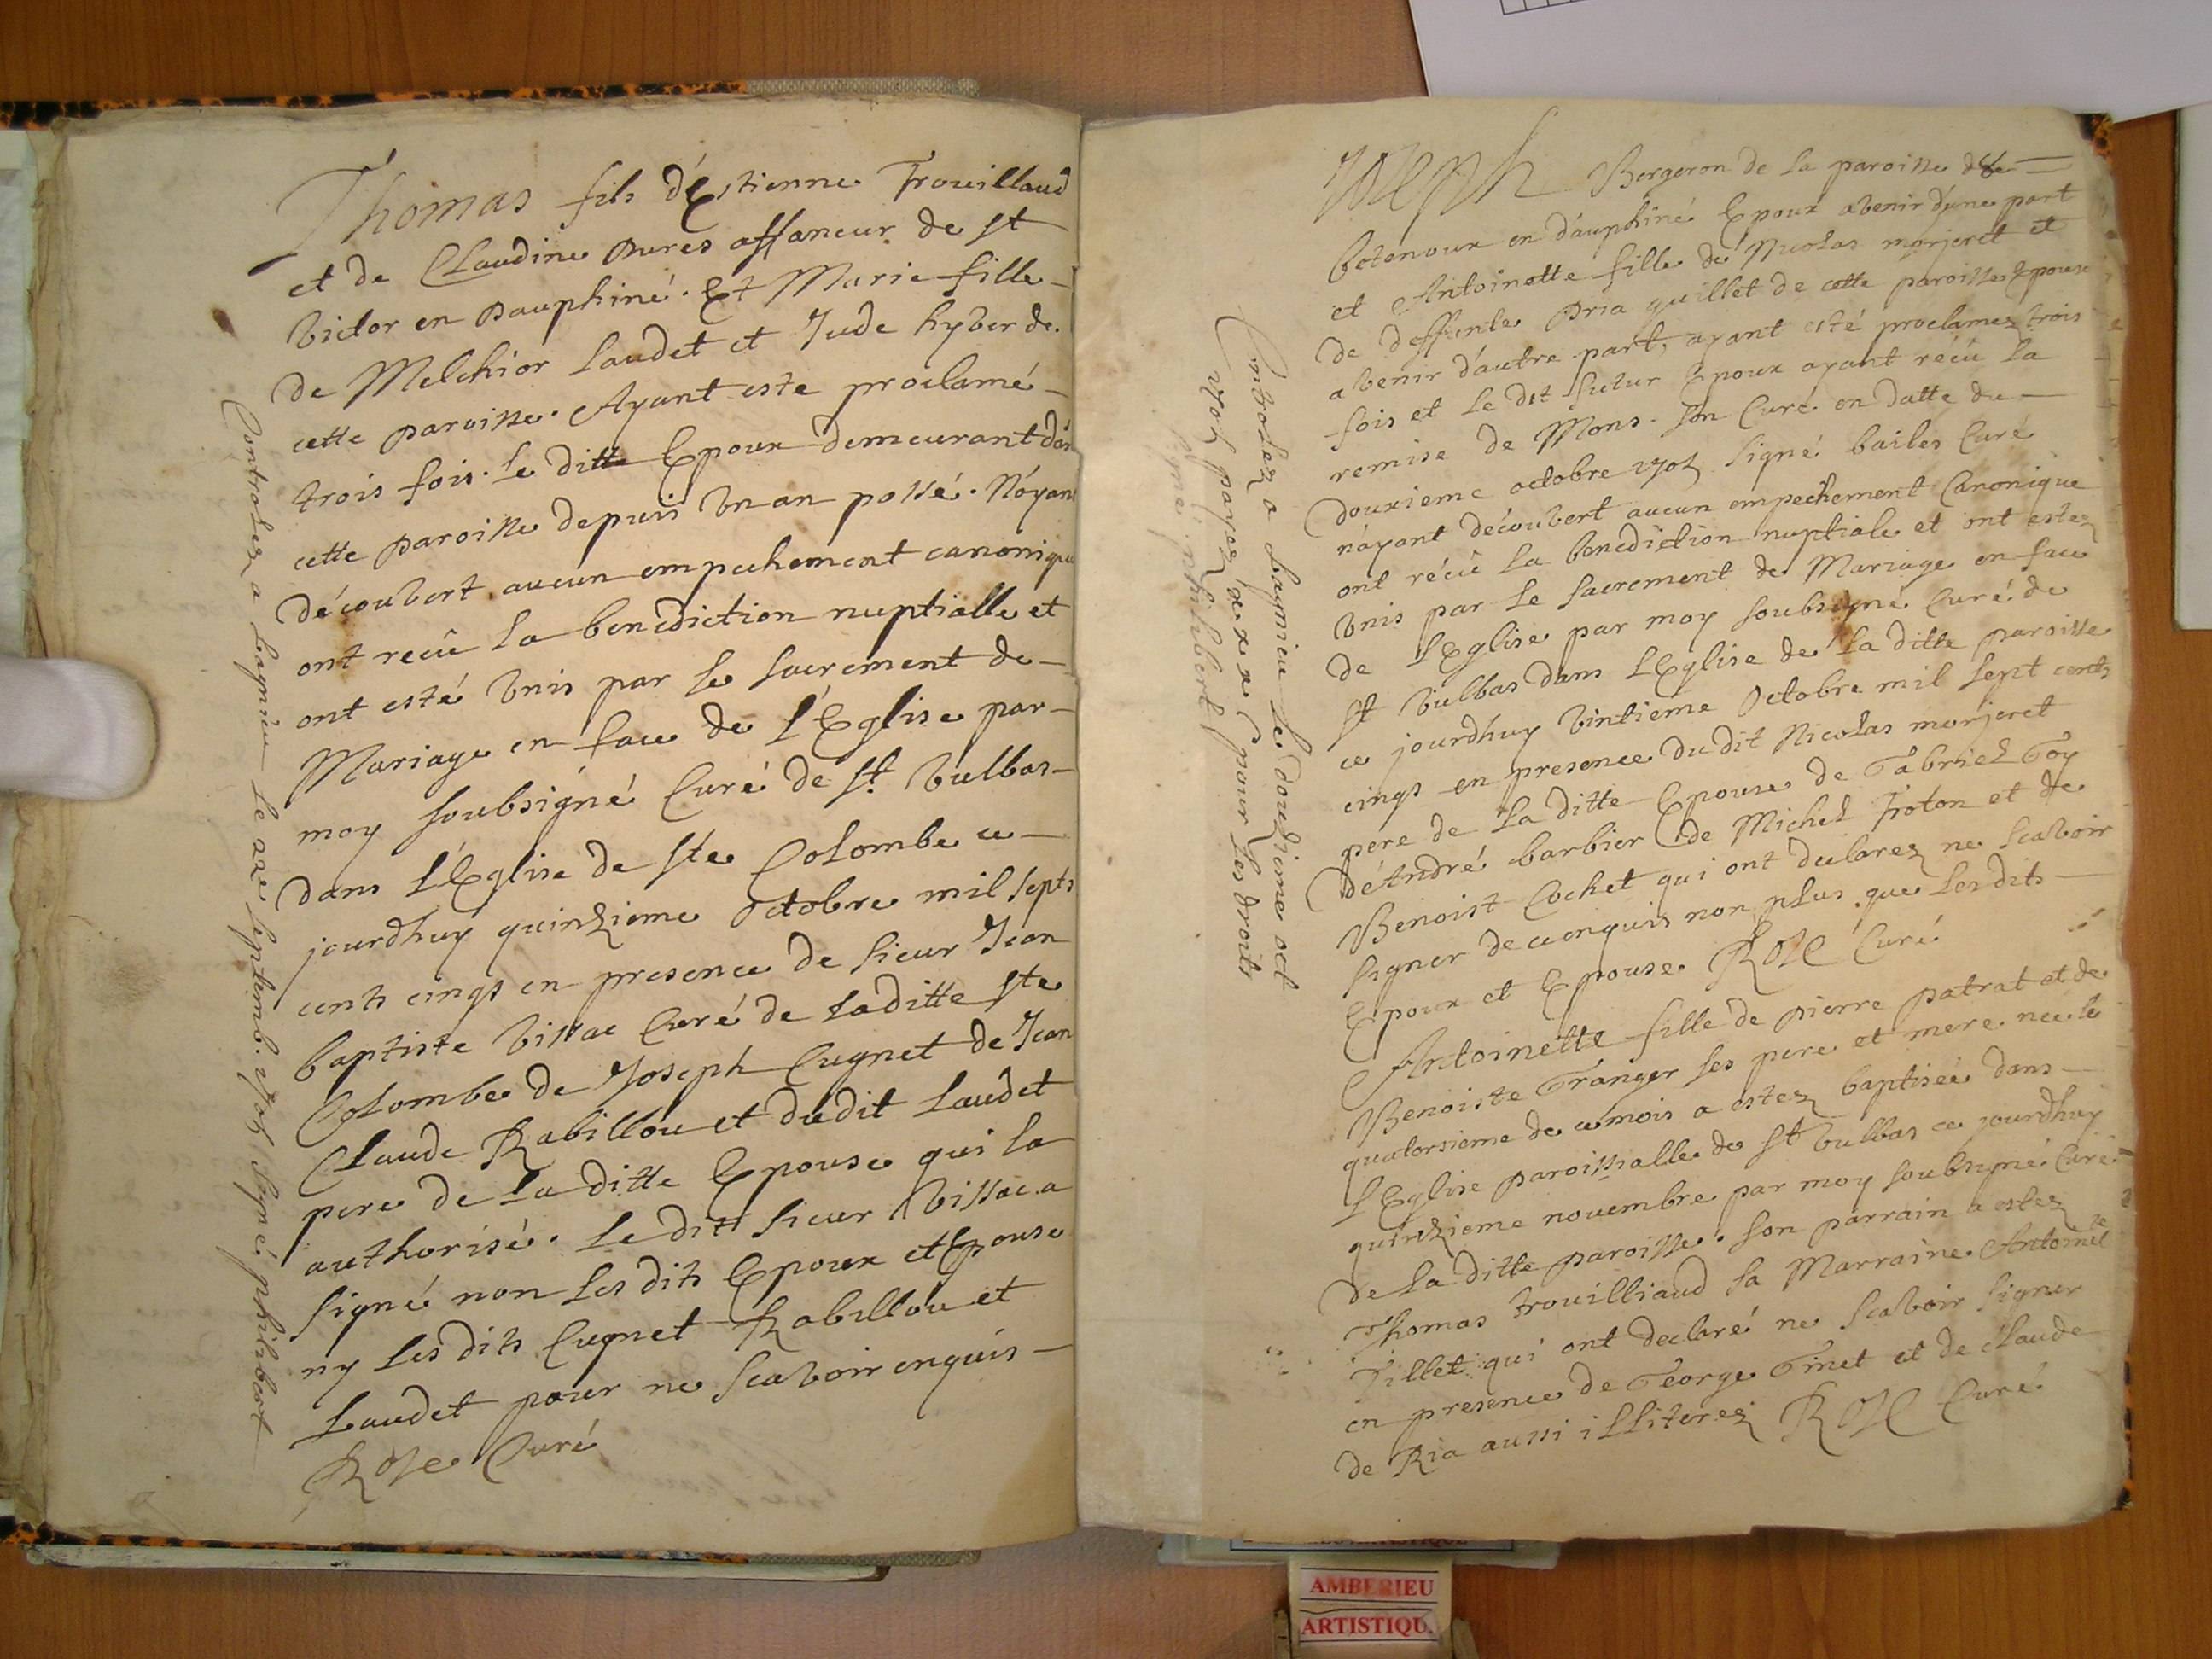 Thomas fils d'Estienne Trouillaud
et de Claudine Dures affaneur de st
victor en Dauphiné. Et Marie fille
de Melchior Laudet et Jude hyver de
cette paroisse. Ayant este proclamé
trois fois. le ditte Epoux demeurant dans
cette paroisse depuis un an passé. N'ayant
découvert aucun empechement canonique
ont recû la benediction nuptialle et
ont esté unis par le sacrement de
Mariage en face de L'Eglise par
moy soubsigné Curé de st vulbas
dans L'Eglise de ste Colombe ce
jourdhuy quinzieme octobre mil septs
cents cinqs en presence de sieur Jean
baptiste vissac Curé de laditte ste
Colombe de Joseph Cugnet de Jean
Claude Rabillou et dudit Laudet
pere de la ditte Epouse qui la
authorisé. le dit sieur vissac a
signé non les dits Epoux et Epouse
ny les dits Cugnet Rabillou et
Laudet pour ne scavoir enquis
Roze Curé
Controlez a Lagnieu le septemb. signé philibert
Joseph Bergeron de la paroisse de
en dauphiné Epoux avenir d'une part
et Antoinette fille de Nicolas morjeret et
de deffunte Pria quillet de cette paroisse Epouse
avenir d'autre part, ayant esté proclamez trois
fois et le dit futur Epoux ayant récû la
remise de Mons. son Curé en datte du
douxieme octobre 1705 signé bailes Curé
n'ayant découvert aucun empechement Canonique
ont récû la benediction nuptiale et ont estez
unis par le sacrement de Mariage en face
de l'Eglise par moy soubsigné Curé de
st vulbas dans L'Eglise de la ditte paroisse
ce jourdhuy vintieme octobre mil sept cents
cinqs en presence du dit Nicolas morjeret
pere de la ditte Epouse de Gabriel Goy
d'André barbier de Michel Froton et de
Benoist Cochet qui ont declarez ne scavoir
signer de ce enquis non plus que les dits
Epoux et Epouse Roze Curé
Antoinette fille de pierre patrat et de
Benoiste Granger ses pere et mere née le
quatorsieme de ce mois a estez baptiseé dans
L'Eglise paroissialle de st vulbas ce jourdhuy
quinzieme novembre par moy soubsigné Curé
de la ditte paroisse. son parrain a estez
Thomas trouilliaud sa Marraine Antoinette
Tillet qui ont declaré ne scavoir signer
en presence de George Ginet et de claude
de Ria aussi illiterez Roze Curé
Controlez a Lagnieu le douzieme oct
1705 pour les droits
signé philibert
AMBERIEU
ARTISTIQU